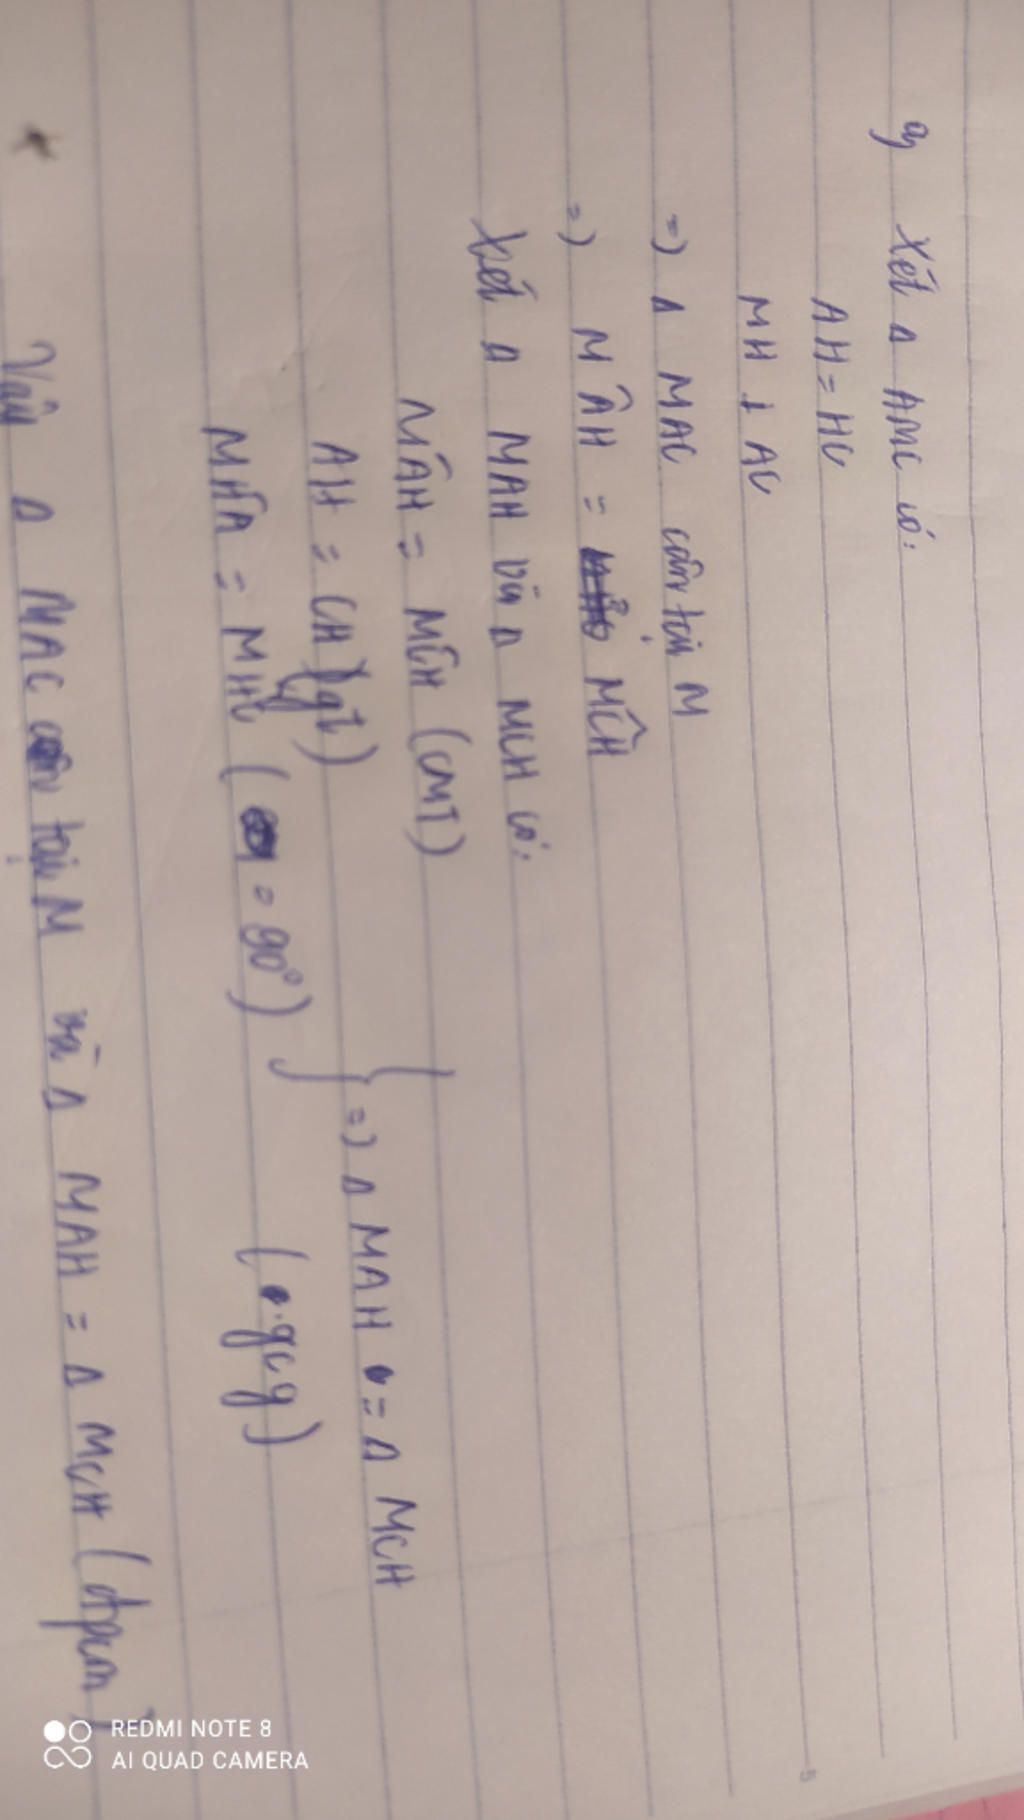 a, Xét Δ AMC có:
AH = HC
MH ⊥ AC
=) Δ MAC cân tại M
=) MÂH = MĈH
Xét Δ MAH và Δ MCH có:
MÂH = MĈH (CMT)
AH = CH (gt)
=) Δ MAH = Δ MCH
MĤA = MĤC ( = 90°)
(gcg)
Vậy Δ MAC cân tại M và Δ MAH = Δ MCH (đpcm)
REDMI NOTE 8
AI QUAD CAMERA